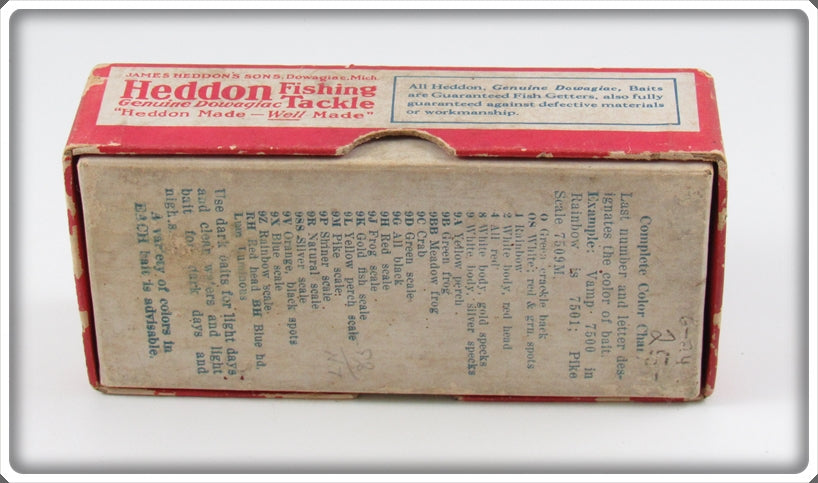 JAMES HEDDON'S SONS, Dowagiac, Mich.
Heddon Fishing
Genuine Dowagiac Tackle
"Heddon Made — Well Made"
All Heddon, Genuine Dowagiac, Baits
are Guaranteed Fish Getters, also fully
guaranteed against defective materials
or workmanship.
Complete Color Chart
Last number and letter des-
ignates the color of bait.
Example: Vamp. 7500 in
Rainbow is 7501; Pike
Scale 7509M
0 Green crackle back
0S White; red & grn spots
1 Rainbow
2 White body, red head
4 All red
8 White body, gold specks
9 White body, silver specks
9A Yellow perch
9B Green frog
9BB Meadow frog
9C Crab
9D Green scale
9G All black
9H Red scale
9J Frog scale
9K Gold fish scale
9L Yellow perch scale
9M Pike scale
9P Shiner scale
9R Natural scale
9S Silver scale
9V Orange, black spots
9X Blue scale
9Z Rainbow scale
RH Red head BH Blue hd.
Lum Luminous
Use dark baits for light days
and clear waters and light
bait for dark days and
nights.
A variety of colors in
EACH bait is advisable.